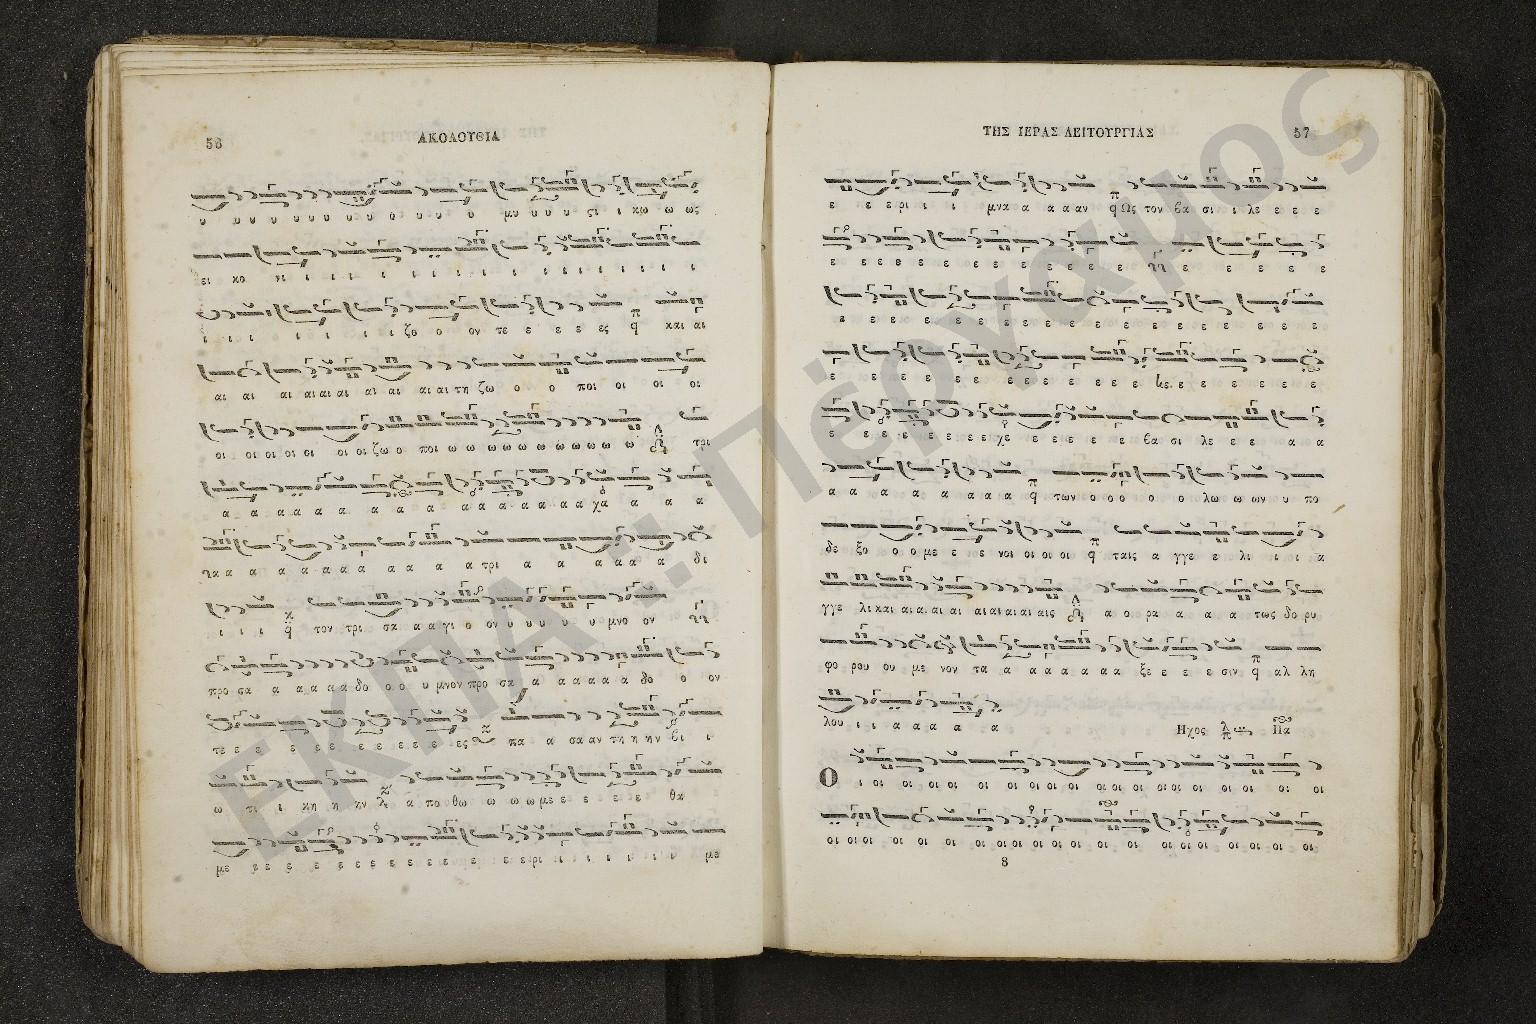 58
ΑΚΟΛΟΥΘΙΑ
υ υυ υ υ υ υ υ υ υ υ υ υ μυ υ υ υ ςι ι κω ω ως
ει κο νι ι ι ι ι ι ι ι ι ι ι ι ι ι ι ι
ι ι ι ι ι ι ι ζο ο ον τε ε ε ε ες και αι
αι αι αι αι αι αι αι αι αι αι τη ζω ο ο ποι οι οι οι
οι οι οι οι οι οι οι ζω ο ποι ω ω ω ω ω ω ω ω ω ω ω τρι
α α α α α α α α α α α α α α α χα α α α
για α α α α α α α α α α τρι α α α α α α δι
ι ι ι τον τρι σα α α γι ο ον υ υ υ υ υ μνο ον
προ σα α α α α α δο ο ο υ μνον προ σα α α α α α α δο ο ον
τε ε ε ε ε ε ε ε ε ε ες πα α σα αν τη η ην βι ι
ω τι ι κη η ην α πο θω ω ω ω με ε ε ε ε θα
με ε ε ε ε ε ε ε ε ε ε ε ε ε ερι ι ι ι ι ι ι ι με
ΤΗΣ ΙΕΡΑΣ ΛΕΙΤΟΥΡΓΙΑΣ
57
ε ε ε ρι ι ι μνα α α α αν Ως τον βα σι ι λε ε ε ε
ε ε ε ε ε ε ε ε ε ε ε ε ε ε ε ε ε ε
ε ε ε ε ε ε ε ε ε ε ε ε ε ε ε ε ε ε
ε ε ε ε ε ε ε ε ε ε ε ε ε κε ε ε ε ε ε ε ε
ε ε ε ε ε ε ε ε χε ε ε ε ε ε βα σι λε ε ε α α
α α α α α α α α α των ο ο ο ο ο λω ω ων υ πο
δε ξο ο ο με ε ε νοι οι οι οι ταις α γγε ε λι ι ι α
γγε λι και αι αι αι αι αι αι αι αι αις α ο ρα α α α τως δο ρυ
φο ρου ου με νον τα α α α α α α α ξε ε ε ε σιν αλ λη
λου ι ι α α α α α Ηχος Πα
Ο ι οι οι οι οι οι οι οι οι οι οι οι οι οι οι οι οι οι οι οι
οι οι οι οι οι οι οι οι οι οι οι οι οι οι οι οι οι οι οι οι οι οι
8
ΕΚΠΑ :: Πέργαμος